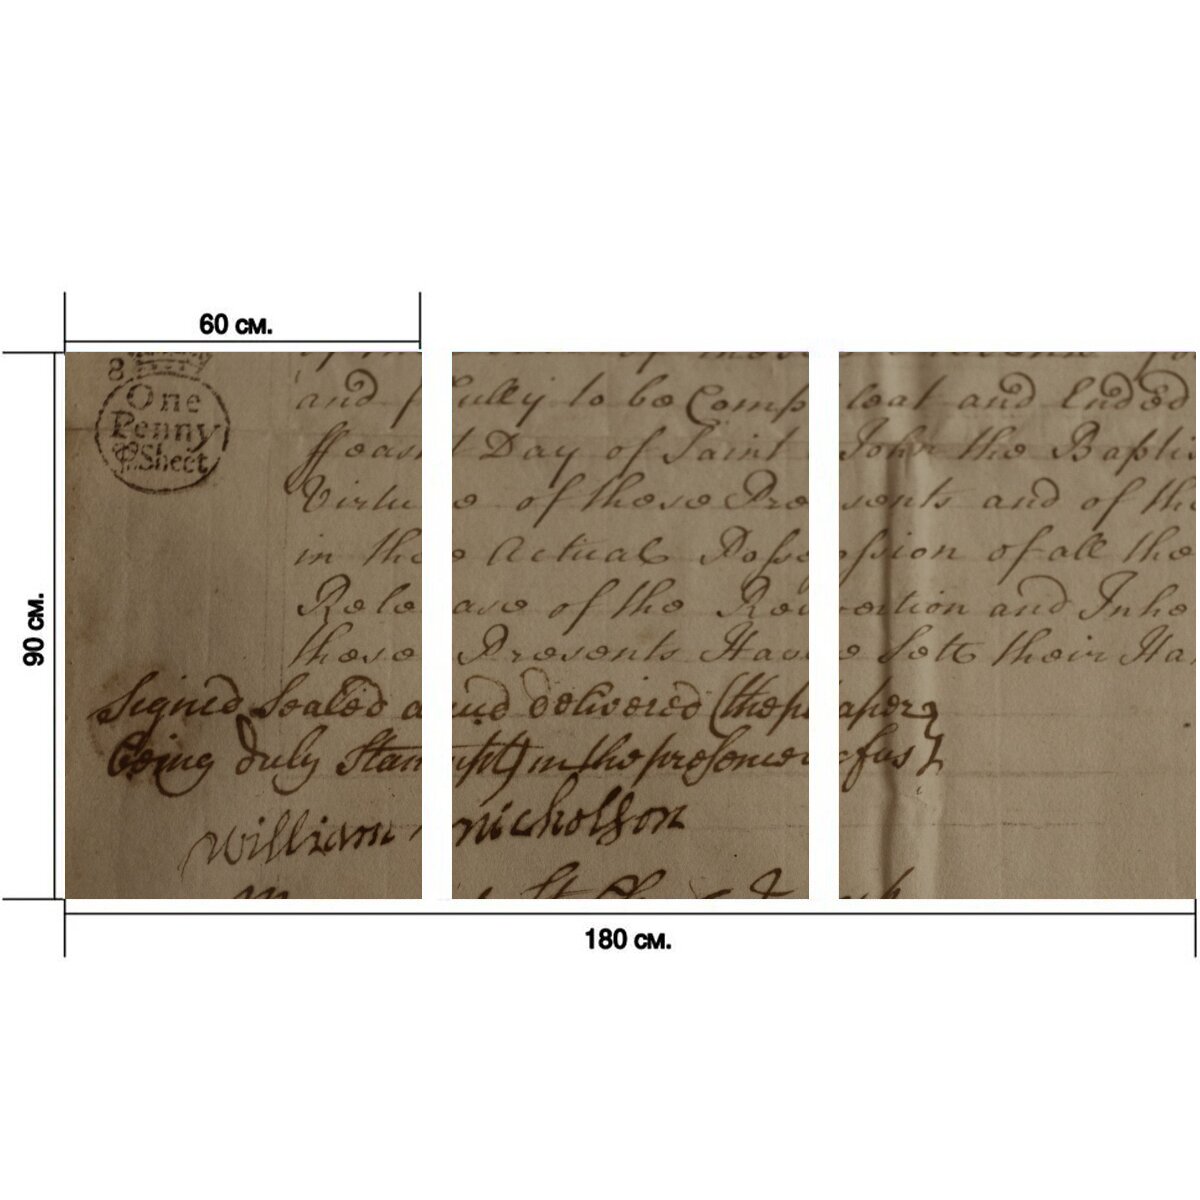 60 см.
90 см.
8
One
Penny
Pr Sheet
and fully to be Compleat and Ended
ffeast Day of Saint John the Baptis
Virtue of these Presents and of the
in the Actual Possession of all the
Release of the Revertion and Inhe
these Presents Have Sett their Ha
Signed Sealed and delivered (the paper
being duly Stampt) in the presence of us
William nicholson
180 см.